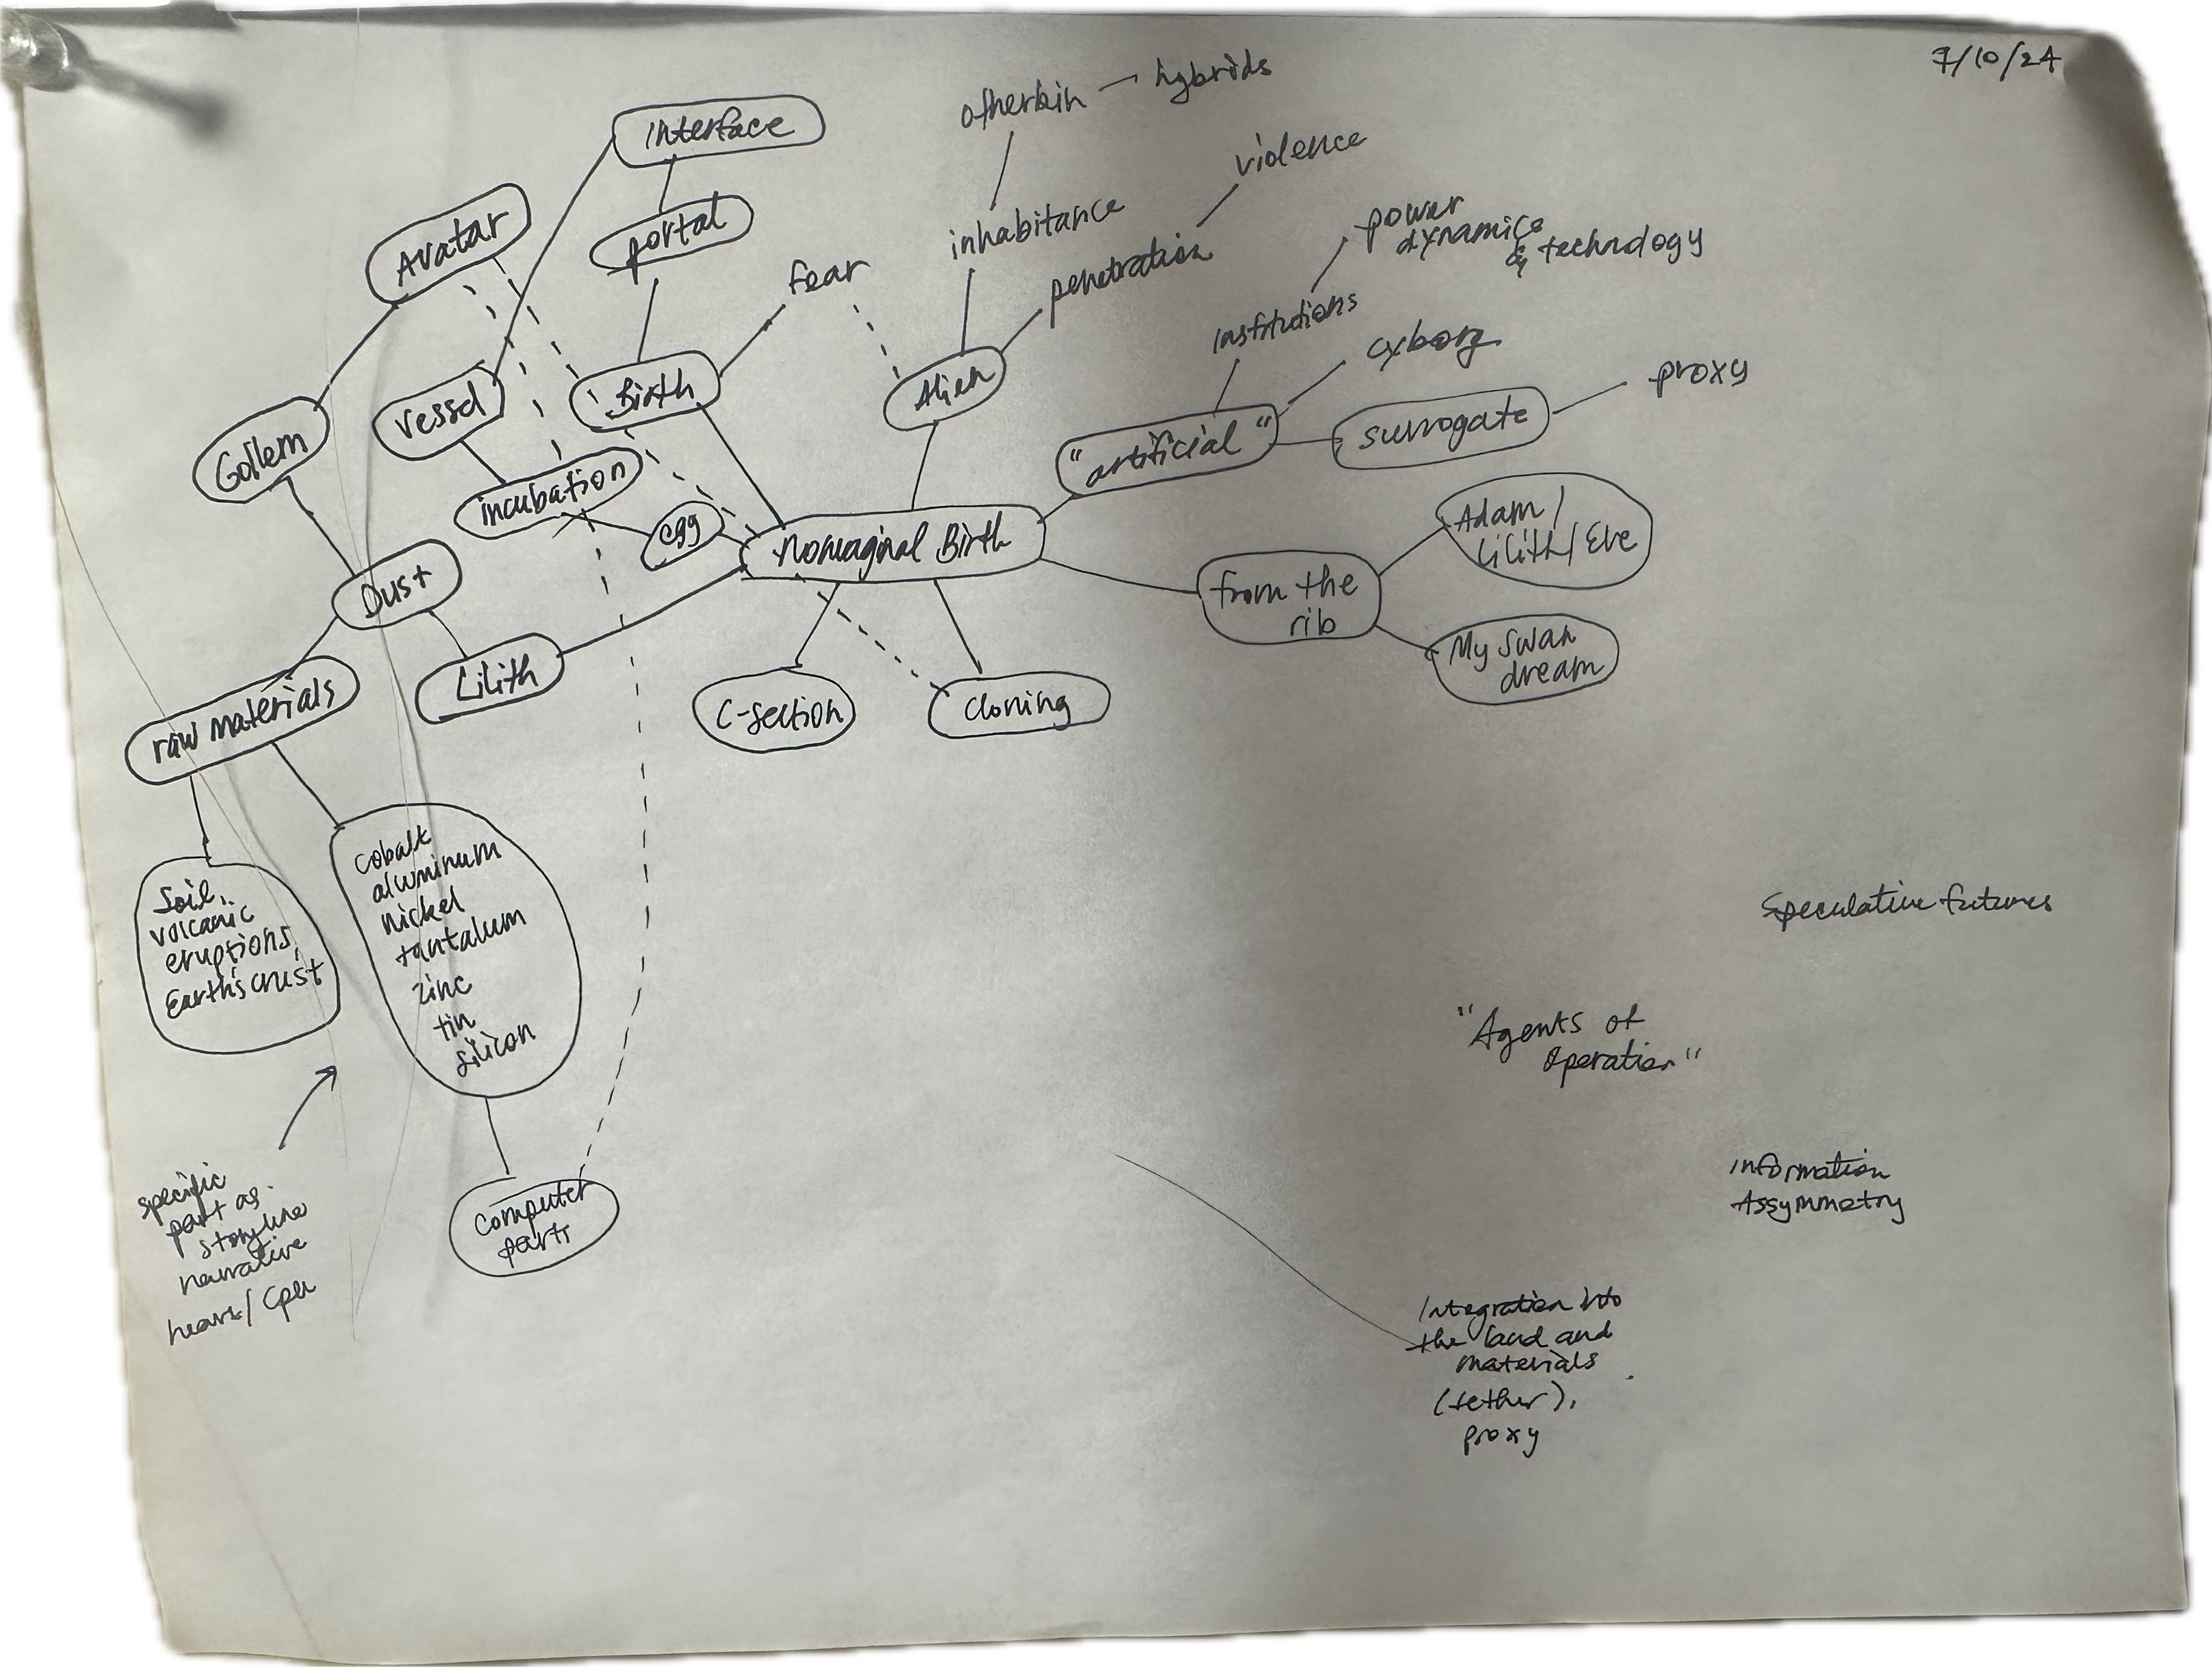 7/10/24
otherkin
hybrids
Interface
violence
portal
Avatar
inhabitance
power
dynamics
& technology
penetration
fear
institutions
cyborg
proxy
Vessel
Birth
Alien
"artificial"
surrogate
Gollem
incubation
egg
Nonvaginal Birth
Adam/
Lilith/Eve
from the
rib
Dust
My swan
dream
Lilith
raw materials
C-section
Cloning
cobalt
aluminum
nickel
tantalum
zinc
tin
silicon
Soil,
volcanic
eruptions,
Earth's crust
Speculative futures
"Agents of
Operation"
specific
part as
storyline
narrative
/ cpu
computer
parts
Information
Assymmetry
Integration into
the land and
materials
(tether),
proxy